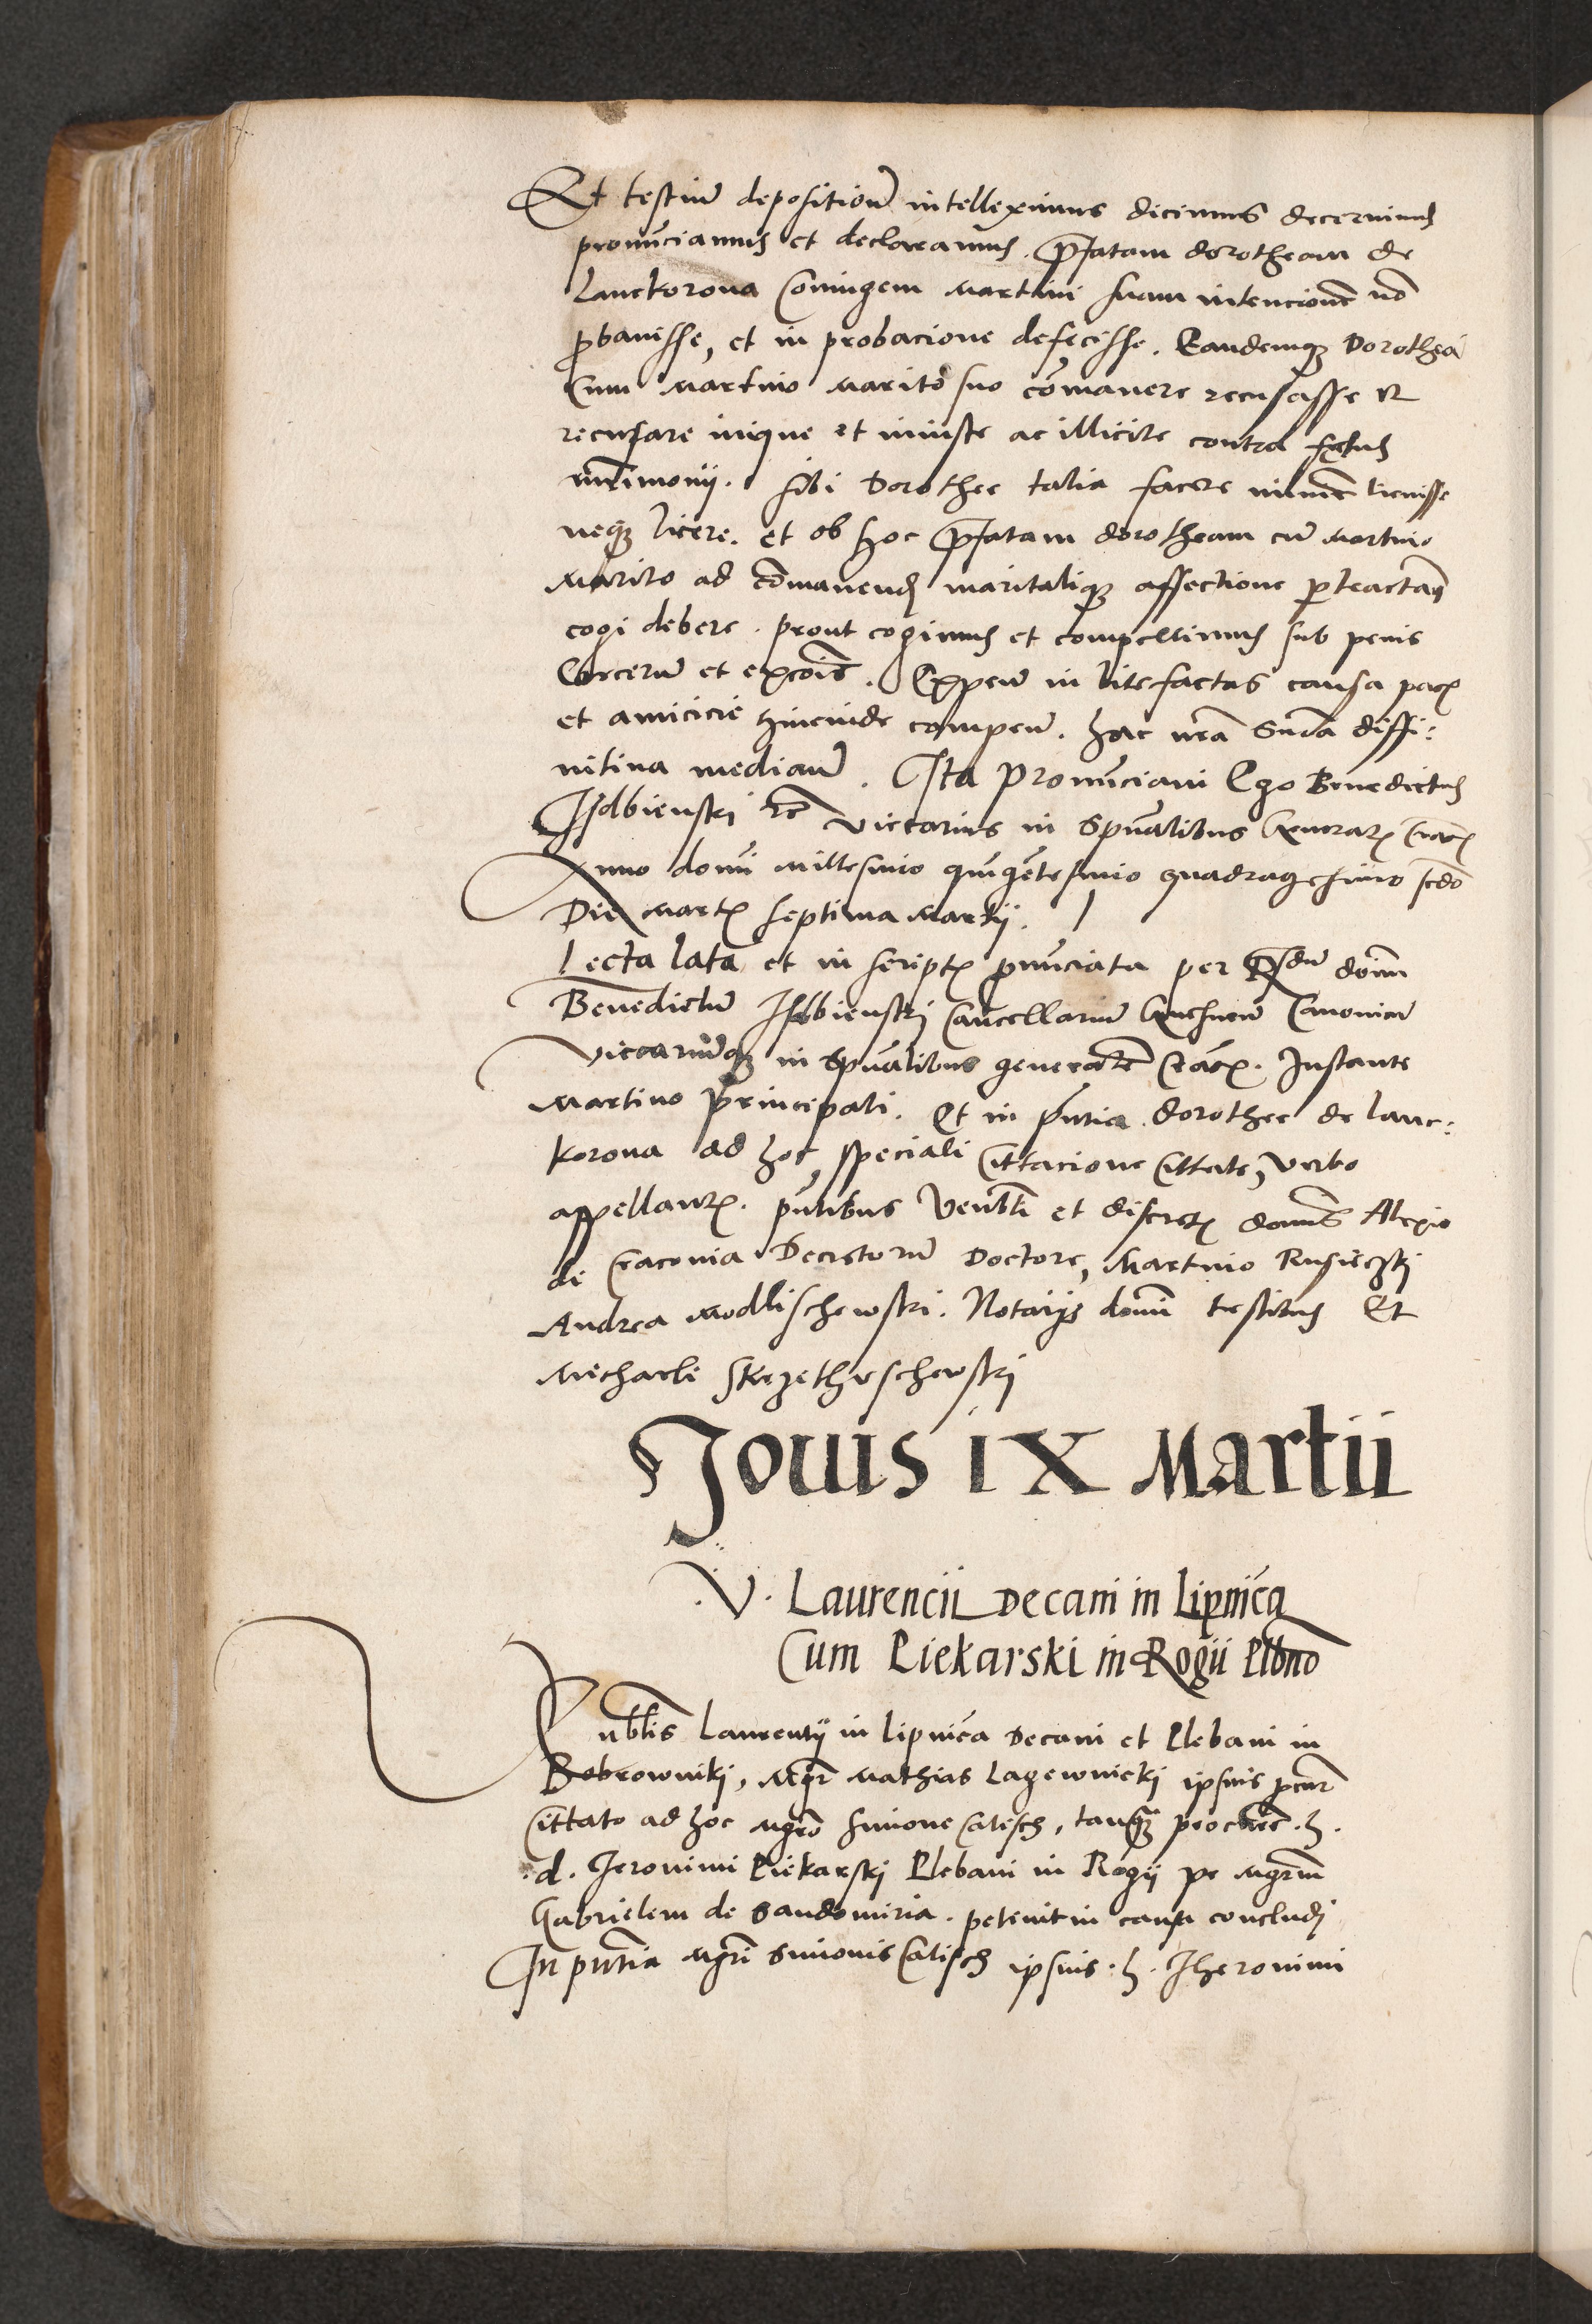 Et testium depositioū intelleximus dicimus decernimus
pronūciamus et declaramus. p̄fatam dorotheam de
Lanckorona Coniugem Martini suam intencionē nō
p̄bauisse, et in probacione defecisse. Eandemqȝ Dorotheā
Cum Martino Marito suo cōmanere recusasse et
recusare inique et iniuste ac illicite contra fedus
mr̄imonij. sibi Dorothee talia facere minime licuisse
neqȝ licere. et ob hoc p̄fatam dorotheam cū Martino
Marito ad cōmanendū maritaliqȝ affectione pertractan̄
cogi debere. prout cogimus et compellimus sub penis
Carcerum et excōis. Expen̄ in lite factas causa pacis
et amicicie hincinde compen̄. hac nr̄a Sn̄ia diffi:
nitiua median̄. Ita Pronūciaui Ego Benedictus
Isdbienski rē Viccarius in Spūalibus Generalis Cracōn
Anno domī Millesimo quīgētesimo quadragesimo scdō
Die Martis septima Martij.
Lecta lata et in scriptis pn̄unciata per R̄dum doīm
Benedictum Isdbienski Cancellarium Gnesnen̄ Canonicum
Viccariumqȝ in Spūalibus generalē Crac. Instante
Martino principali. Et in pn̄tia dorothee de lanc:
korona ad hoc speciali Cittacione Cittate, verbo
appellantis. pn̄tibus Venblī et discretis dominis Alexio
de Craconia Decretorum Doctore, Martino Rusieczki
Andrea Modlischewski. Notarijs domī testibus Et
Michaele Skrzethvschewski
Jouis IX Martii
V. Laurencii Decani in Lipnica
Cum Piekarski in Rogii Plbno
Vnblis Laurentij in lipnica Decani et Plebani in
Bobrowniki, Mgr̄ Mathias Lagewnicki ipsius pcur̄
Cittato ad hoc mgrō Simone Calisch, tanqȝ procure. h.
d. Jeronimi Piekarski Plebani in Rogij pe mgr̄um
Gabrielem de Sandomiria. petiuit in causa concludi
In pn̄tia mgrī Simonis Calisch ipsius. h. Jheronimi